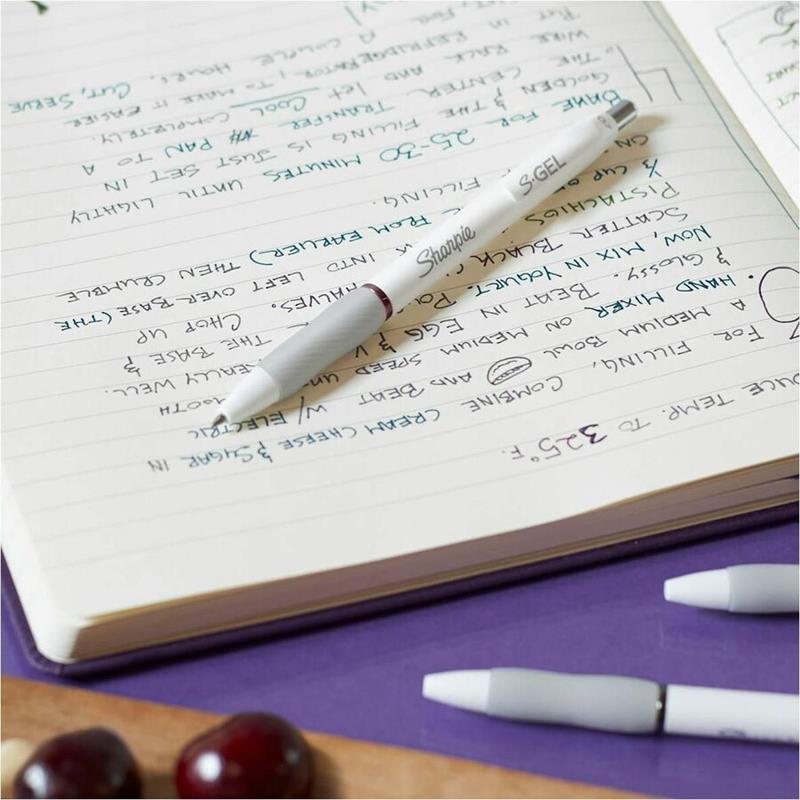 TEMP. TO 325°F.
FOR FILLING, COMBINE CREAM CHEESE & SUGAR IN
A MEDIUM BOWL AND BEAT W/ ELECTRIC
HAND MIXER ON MEDIUM SPEED
& GLOSSY. BEAT IN EGG & REALLY WELL.
NOW, MIX IN YOGURT. THE BASE &
SCATTER BLACK HALVES. CHOP UP
PISTACHIOS INTO LEFT OVER BASE (THE
CUP FROM EARLIER) THEN CRUMBLE
ON FILLING.
4
BAKE FOR 25-30 MINUTES UNTIL LIGHTLY
GOLDEN & THE FILLING IS JUST SET IN
THE CENTER TRANSFER PAN TO A
WIRE RACK AND LET COOL COMPLETELY.
PUT IN REFRIDGERATOR, TO MAKE IT EASIER
A COUPLE HOURS. CUT, SERVE
Sharpie S·GEL